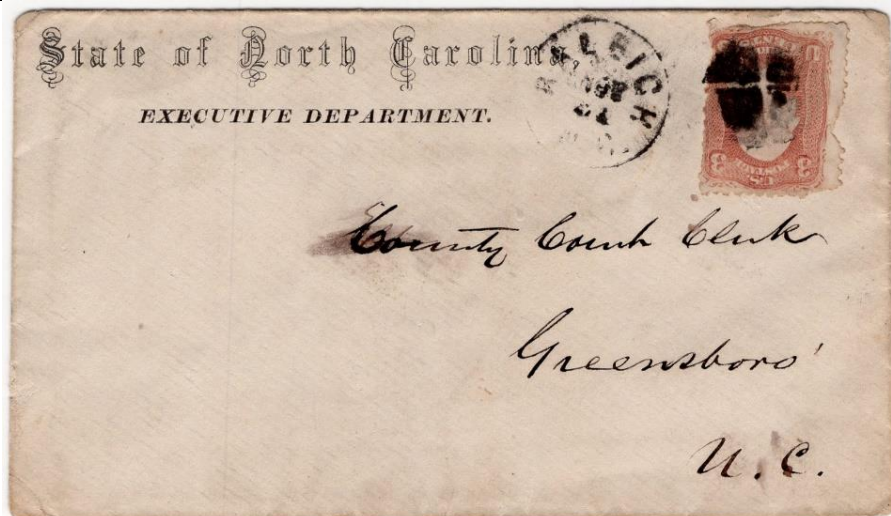 State of North Carolina,
EXECUTIVE DEPARTMENT.
RALEIGH
County Court Clerk
Greensboro'
N. C.